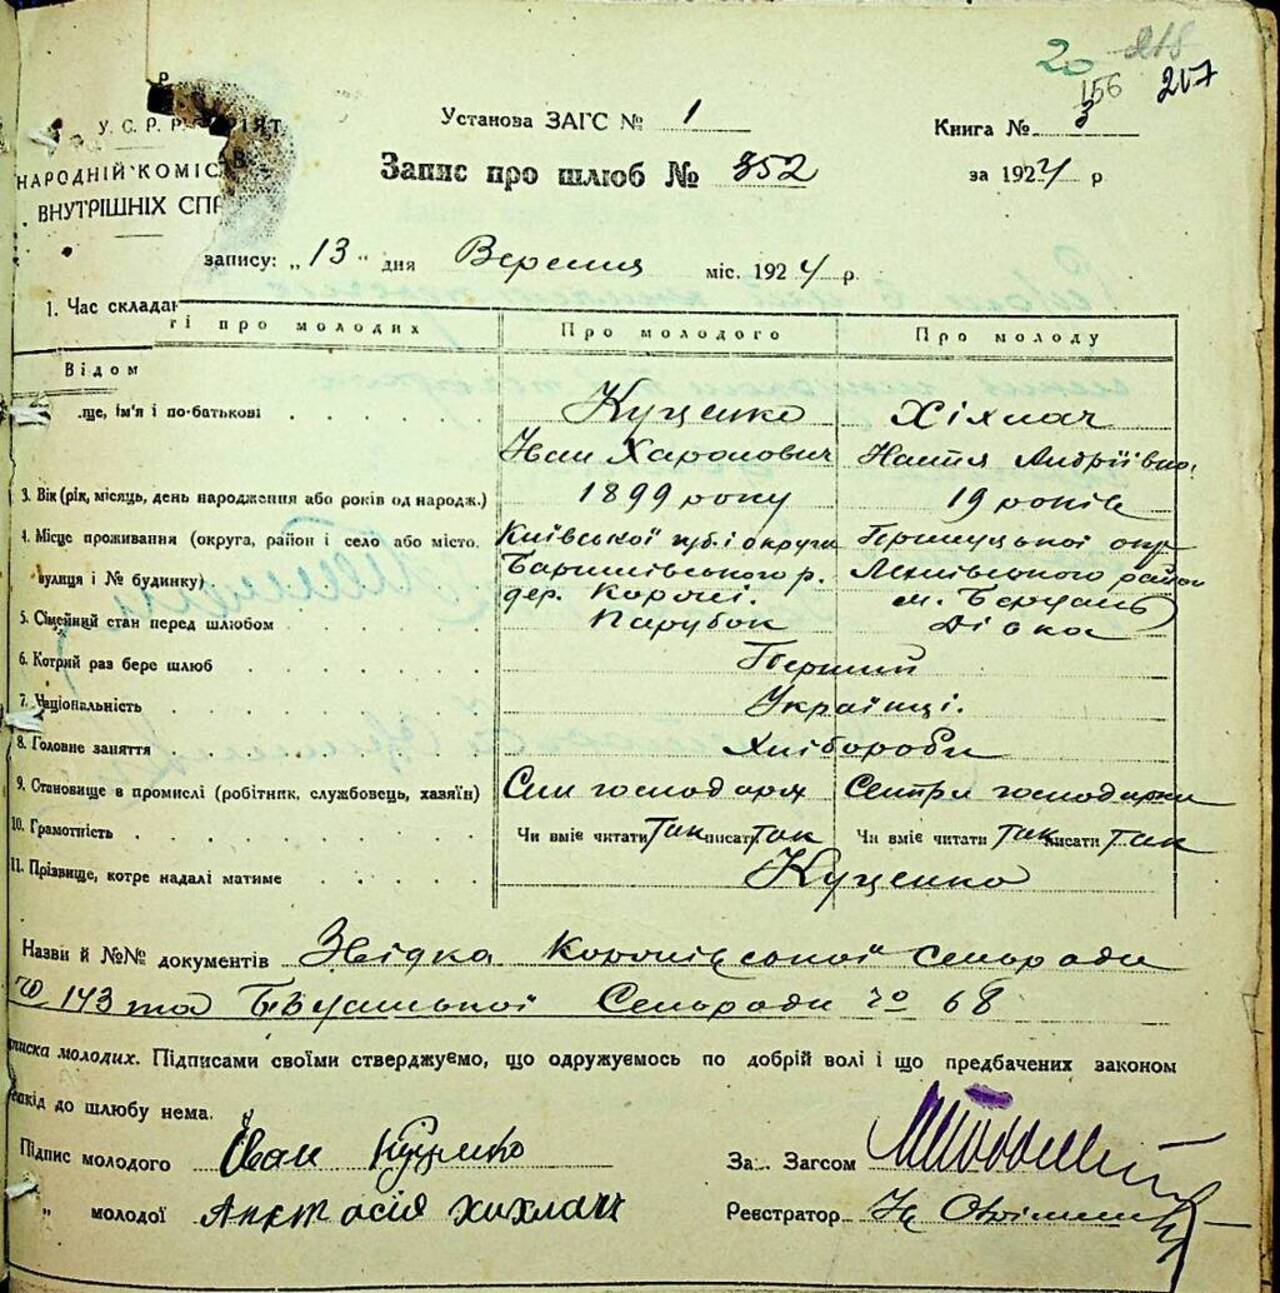 20 218
156 217
У. С. Р. Р.
НАРОДНІЙ КОМІС
ВНУТРІШНІХ СПР
Установа ЗАГС № 1
Книга № 3
Запис про шлюб № 352
за 1924 р
запису: „13" дня Вересня міс. 1924 р.
1. Час складан
ті про молодих Про молодого Про молоду
Відом
ще, ім'я і по-батькові Куценко Хіхлач
Іван Харонович Настя Андріївна
3. Вік (рік, місяць, день народження або років од народж.) 1899 року 19 років
4. Місце проживання (округа, район і село або місто, Київської губ. і округи
вулиця і № будинку) Баришівського р. район
дер. Короні. м. Березань
5. Сімейний стан перед шлюбом Парубок Дівка
6. Котрий раз бере шлюб Перший
7. Національність Українці.
8. Головне заняття Хлібороби
9. Становище в промислі (робітник, службовець, хазяїн) Син господаря Сестра господарки
10. Грамотність Чи вміє читати так писати так Чи вміє читати так писати так
11. Прізвище, котре надалі матиме Куценко
Назви й №№ документів Звідка Коронівської Сельради
№ 143 та Сельради № 68
писка молодих. Підписами своїми стверджуємо, що одружуємось по добрій волі і що предбачених законом
шкід до шлюбу нема.
Підпис молодого Іван Куценко За.. Загсом
„ молодої Анастасія Хихлач Реєстратор